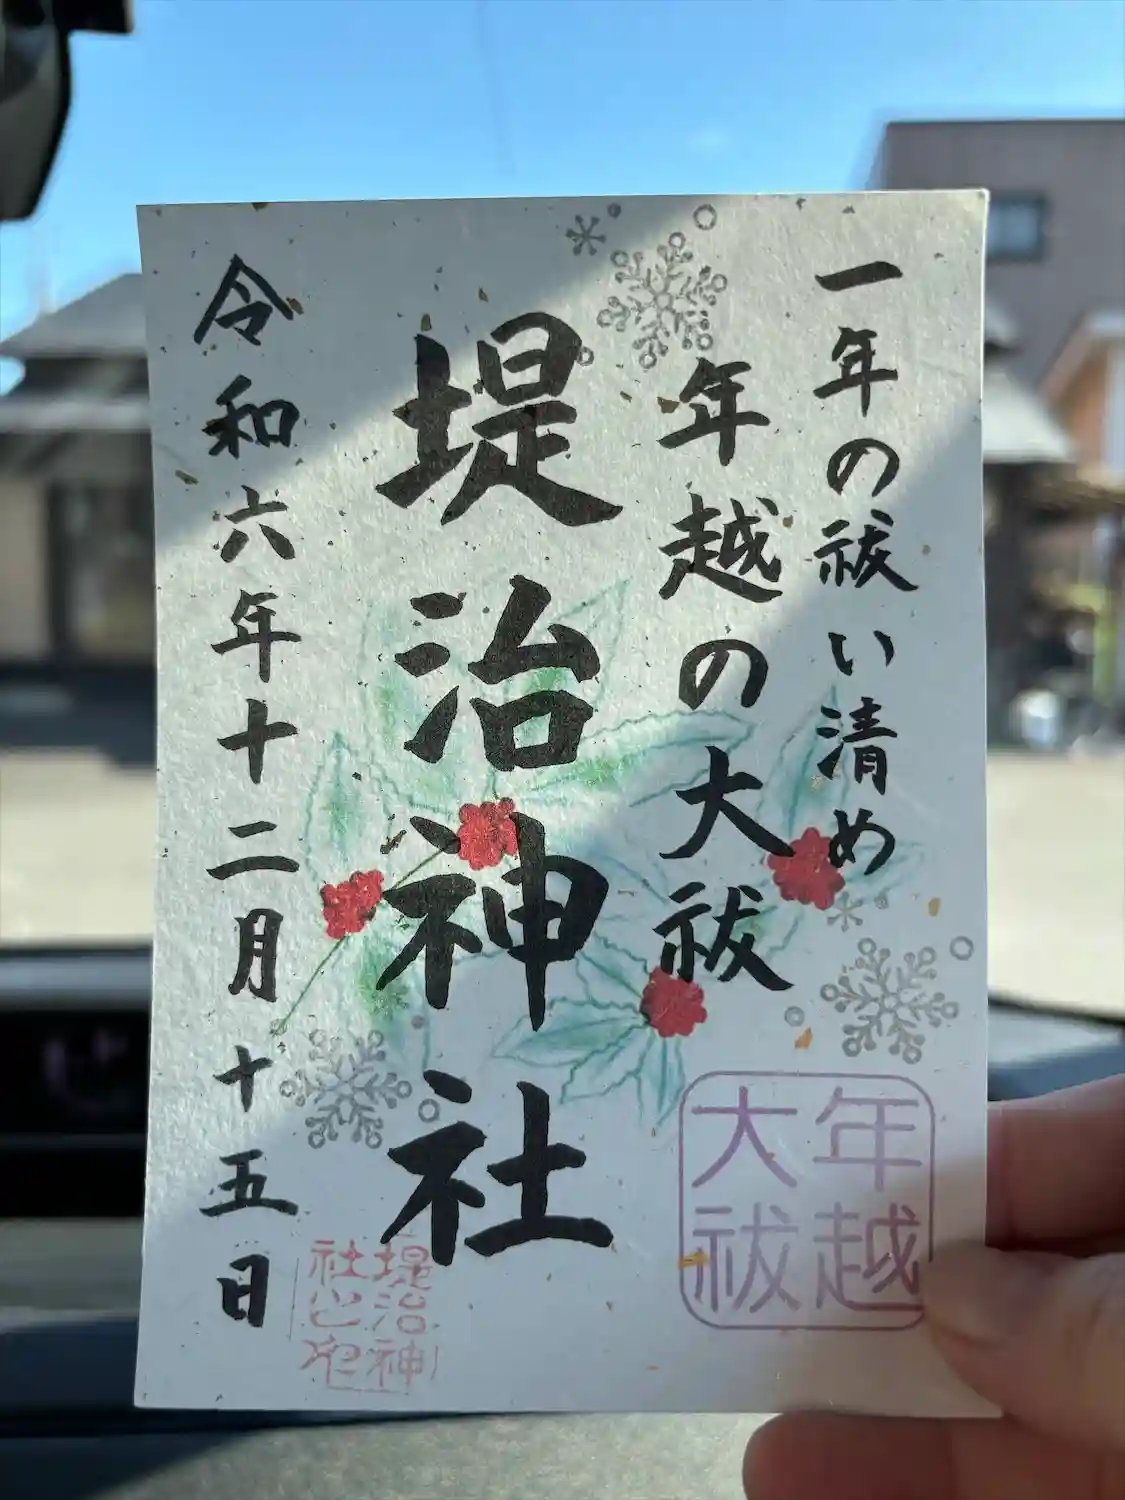 一年の祓い清め
年越の大祓
堤治神社
令和六年十二月十五日
年越
大祓
堤治神
社之印